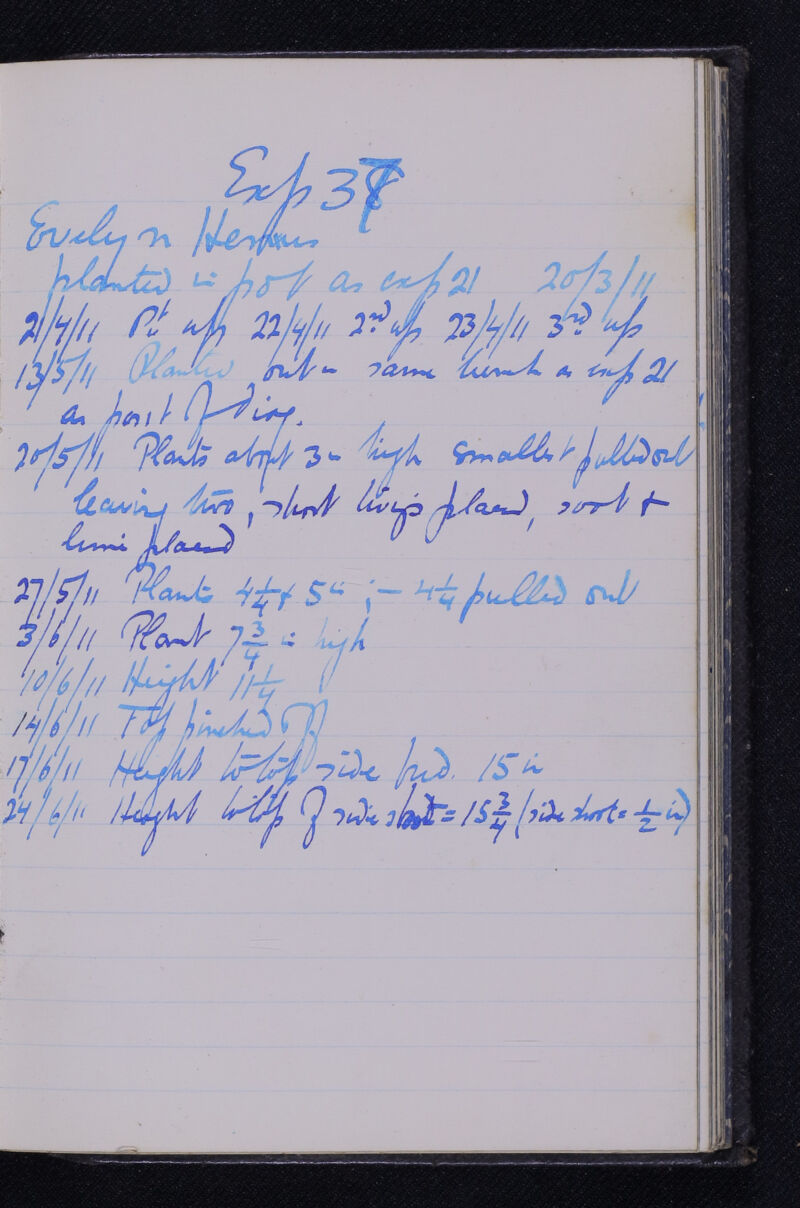 Exp 37
Evelyn Hemus
planted in pot as exp 21 20/3/11
21/4/11 Pt up 22/4/11 2nd up 23/4/11 3rd up
13/5/11 Planted out in same trench as exp 21
as posit of diag.
20/5/11 Plants about 3 in high smallest pulled out
leaving two, short twigs placed, soot &
lime placed
27/5/11 Plants 4 1/4 & 5 in ; – 4 1/4 pulled out
3/6/11 Plant 7 3/4 in high
10/6/11 Height 11 1/4
14/6/11 Top pinched off
17/6/11 Height to top side bud. 15 in
24/6/11 Height to top of side shoot = 15 3/4 (side shoot = 1/2 in)